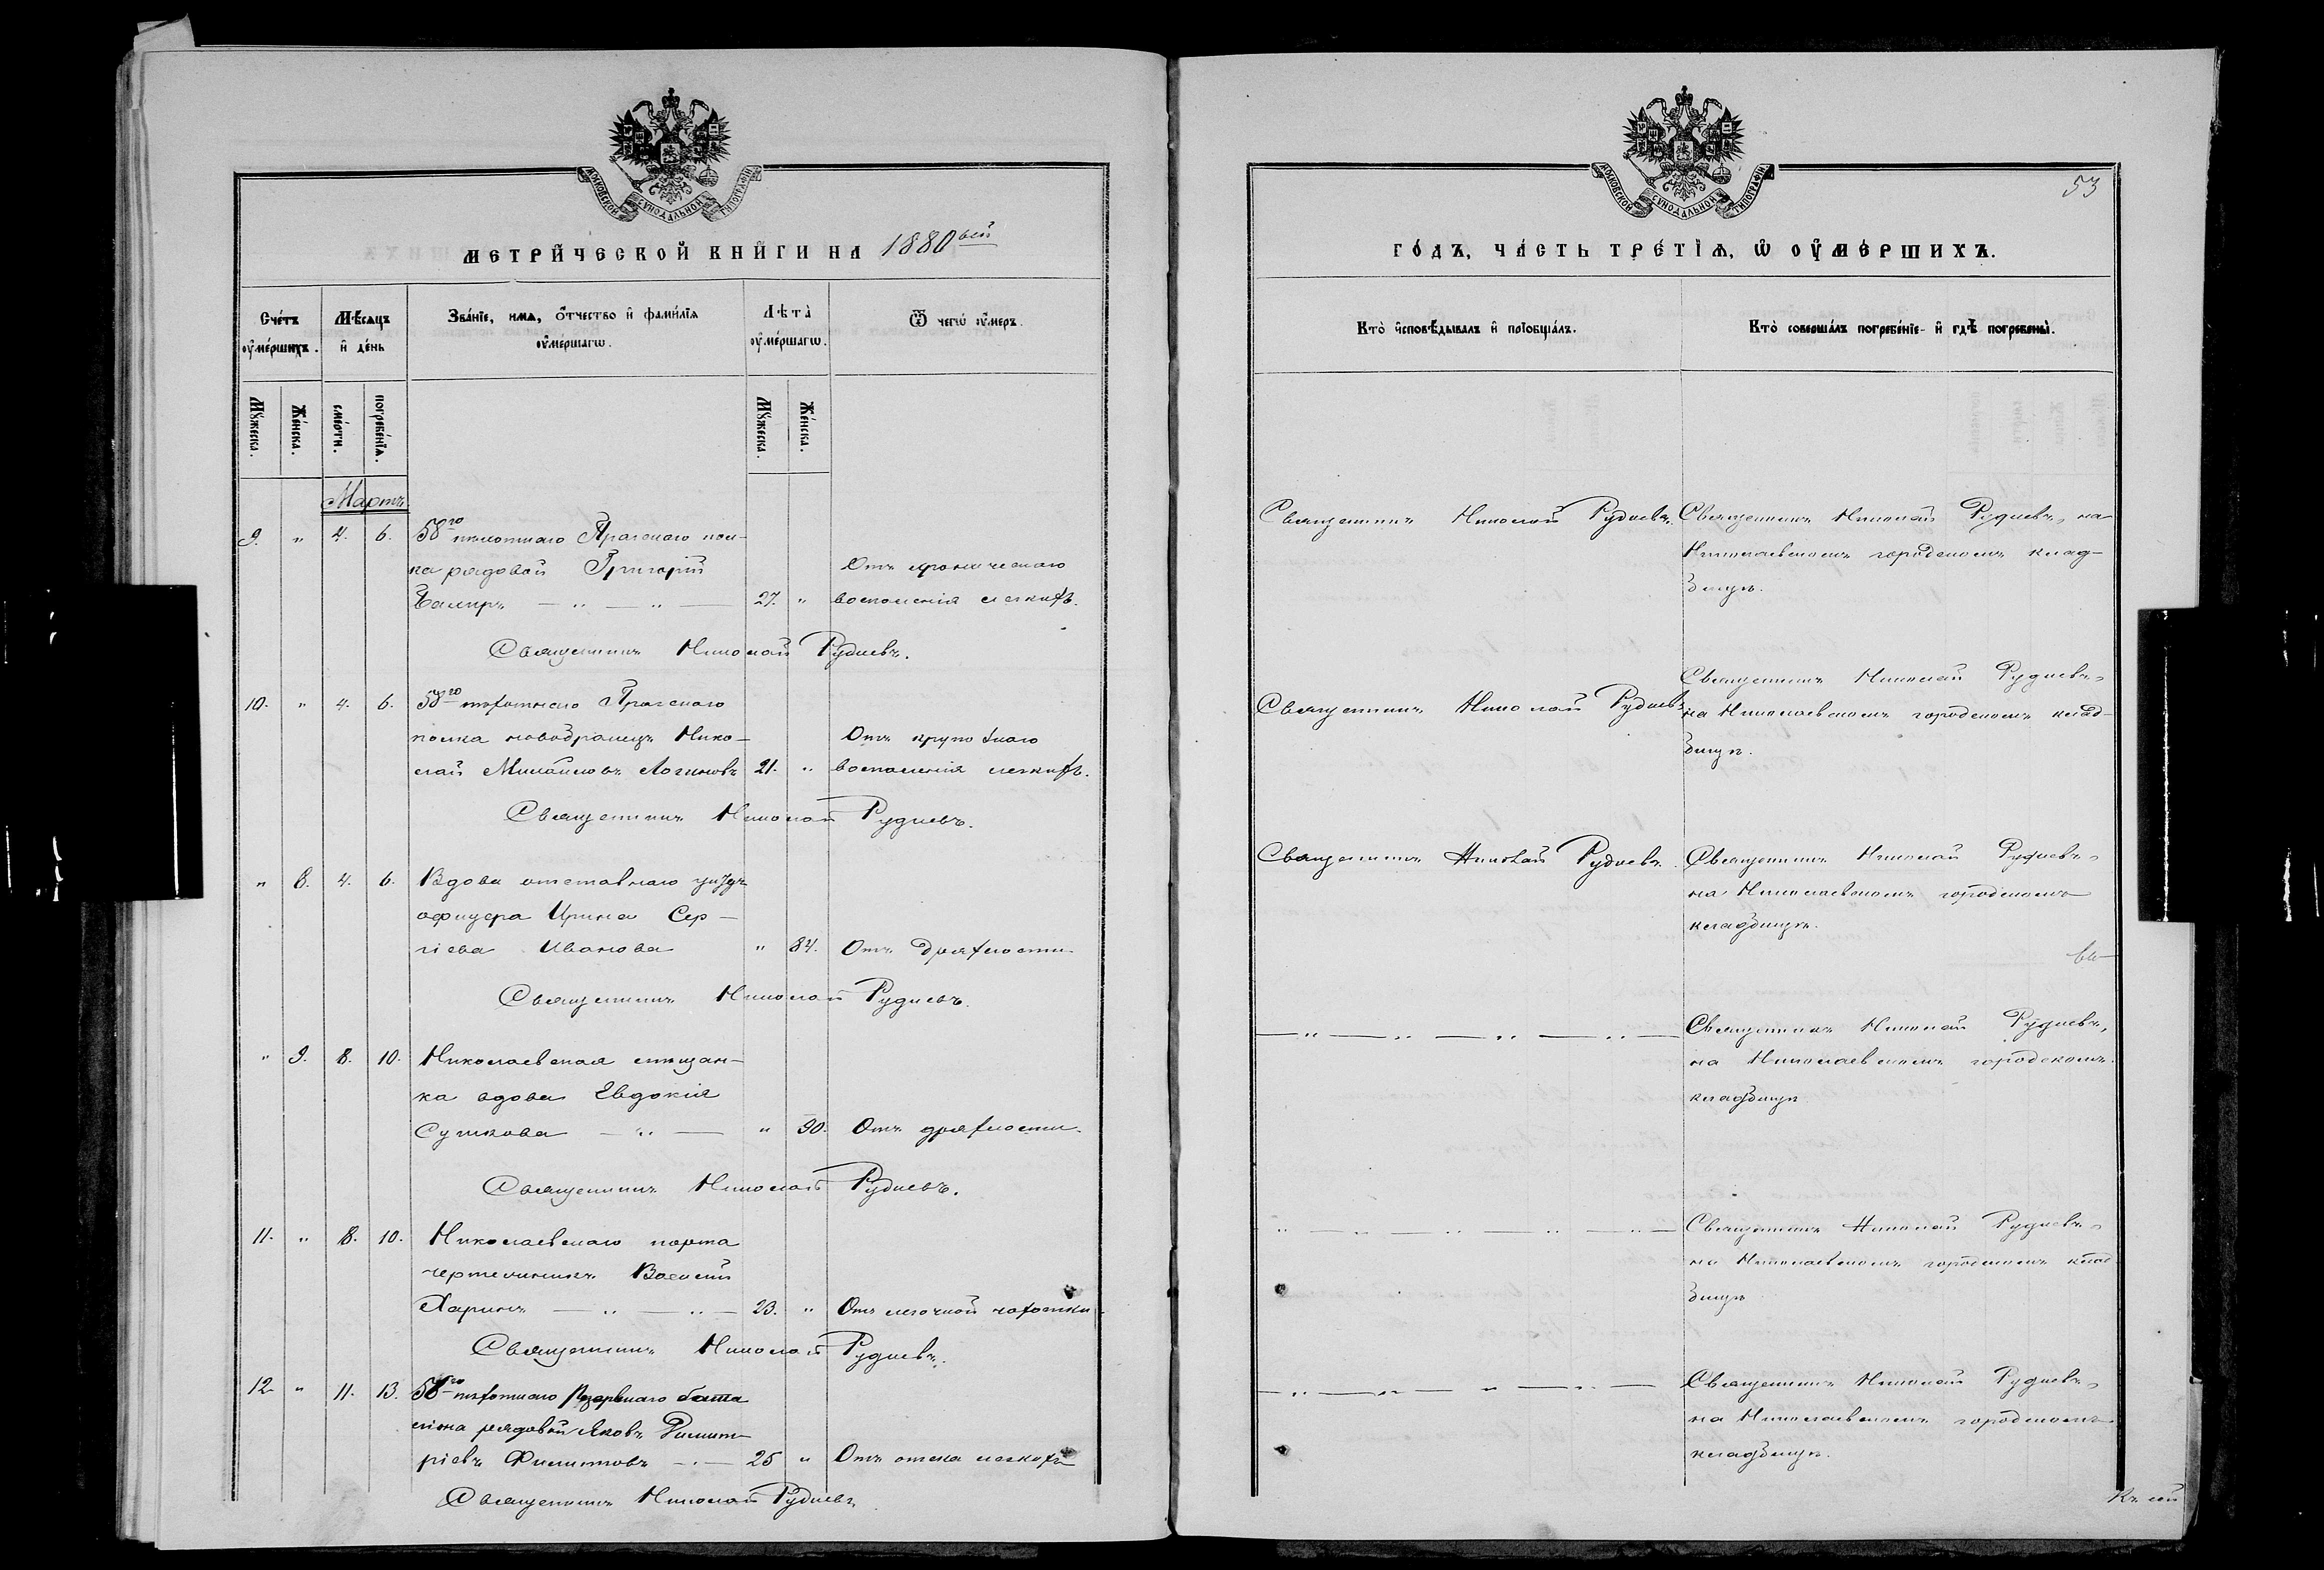 МОСКОВСКОЙ СѴНОДАЛЬНОЙ ТИПОГРАФІИ
МЕТРИ́ЧЕСКОЙ КНИ́ГИ НА 1880ый
Сче́тъ оу҆ме́ршихъ.
Мѣ́сяцъ и҆ де́нь
Зва́нїе, имѧ, ѻ҆́тчество и҆ фами́лїѧ оу҆ме́ршагѡ.
Лѣта̀ оу҆ме́ршагѡ.
Ѿ чегѡ̀ оу҆́меръ.
Мꙋ́жеска.
Же́нска.
сме́рти.
погребе́нїѧ.
Мꙋ́жеска.
Же́нска.
Мартъ
9. " 4. 6. 58го пѣхотнаго Прагскаго пол-
ка рядовой Григорій
27. "
Отъ хроническаго
воспаленія легкихъ.
Священникъ Николай Рудневъ.
10. " 4. 6. 58го пѣхотнаго Прагскаго
полка новобранецъ Нико-
лай Михайловъ Логиновъ 21. "
Отъ крупознаго
воспаленія легкихъ.
Священникъ Николай Рудневъ.
" 8. 4. 6. Вдова отставнаго унтеръ
офицера Ирина Сер-
гіева Иванова " 84. Отъ дряхлости.
Священникъ Николай Рудневъ.
" 9. 8. 10. Николаевская мѣщан-
ка вдова Евдокія
Сушкова " 90. Отъ дряхлости.
Священникъ Николай Рудневъ.
11. " 8. 10. Николаевскаго порта
чертежникъ Василій
Харинъ 23. " Отъ легочной чахотки.
Священникъ Николай Рудневъ.
12. " 11. 13. 58го пѣхотнаго резервнаго бата
ліона рядовой Яковъ Димит-
ріевъ Филиповъ 25 " Отъ отека легкихъ
Священникъ Николай Рудневъ
МОСКОВСКОЙ СѴНОДАЛЬНОЙ ТИПОГРАФІИ
53
ГО́ДЪ, ЧА́СТЬ ТРЕ́ТЇѦ, Ѡ҆ ОУ҆МЕ́РШИХЪ.
Кто̀ и҆сповѣ́дывалъ и҆ прїобща́лъ.
Кто̀ соверша́лъ погребе́нїе и҆ гдѣ̀ погребены̀.
Священникъ Николай Рудневъ.
Священникъ Николай Рудневъ, на
Николаевскомъ городскомъ клад-
бищѣ.
Священникъ Николай Рудневъ
Священникъ Николай Рудневъ,
на Николаевскомъ городскомъ клад-
бищѣ.
Священникъ Николай Рудневъ.
Священникъ Николай Рудневъ,
на Николаевскомъ городскомъ
кладбищѣ.
Священникъ Николай Рудневъ,
на Николаевскомъ городскомъ
кладбищѣ
Священникъ Николай Рудневъ,
на Николаевскомъ городскомъ клад
бищѣ
Священникъ Николай Рудневъ,
на Николаевскомъ городскомъ
кладбищѣ.
Къ сей